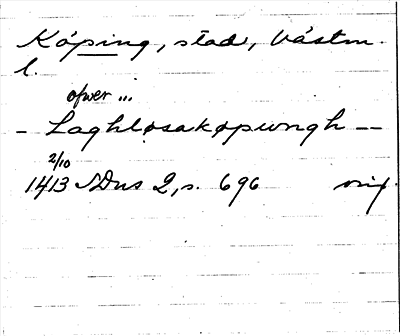 Köping, stad, Västm.
l.
ofwer ...
- Laghløsakøpungh --
2/10
1413 SDns 2, s. 696 orig.